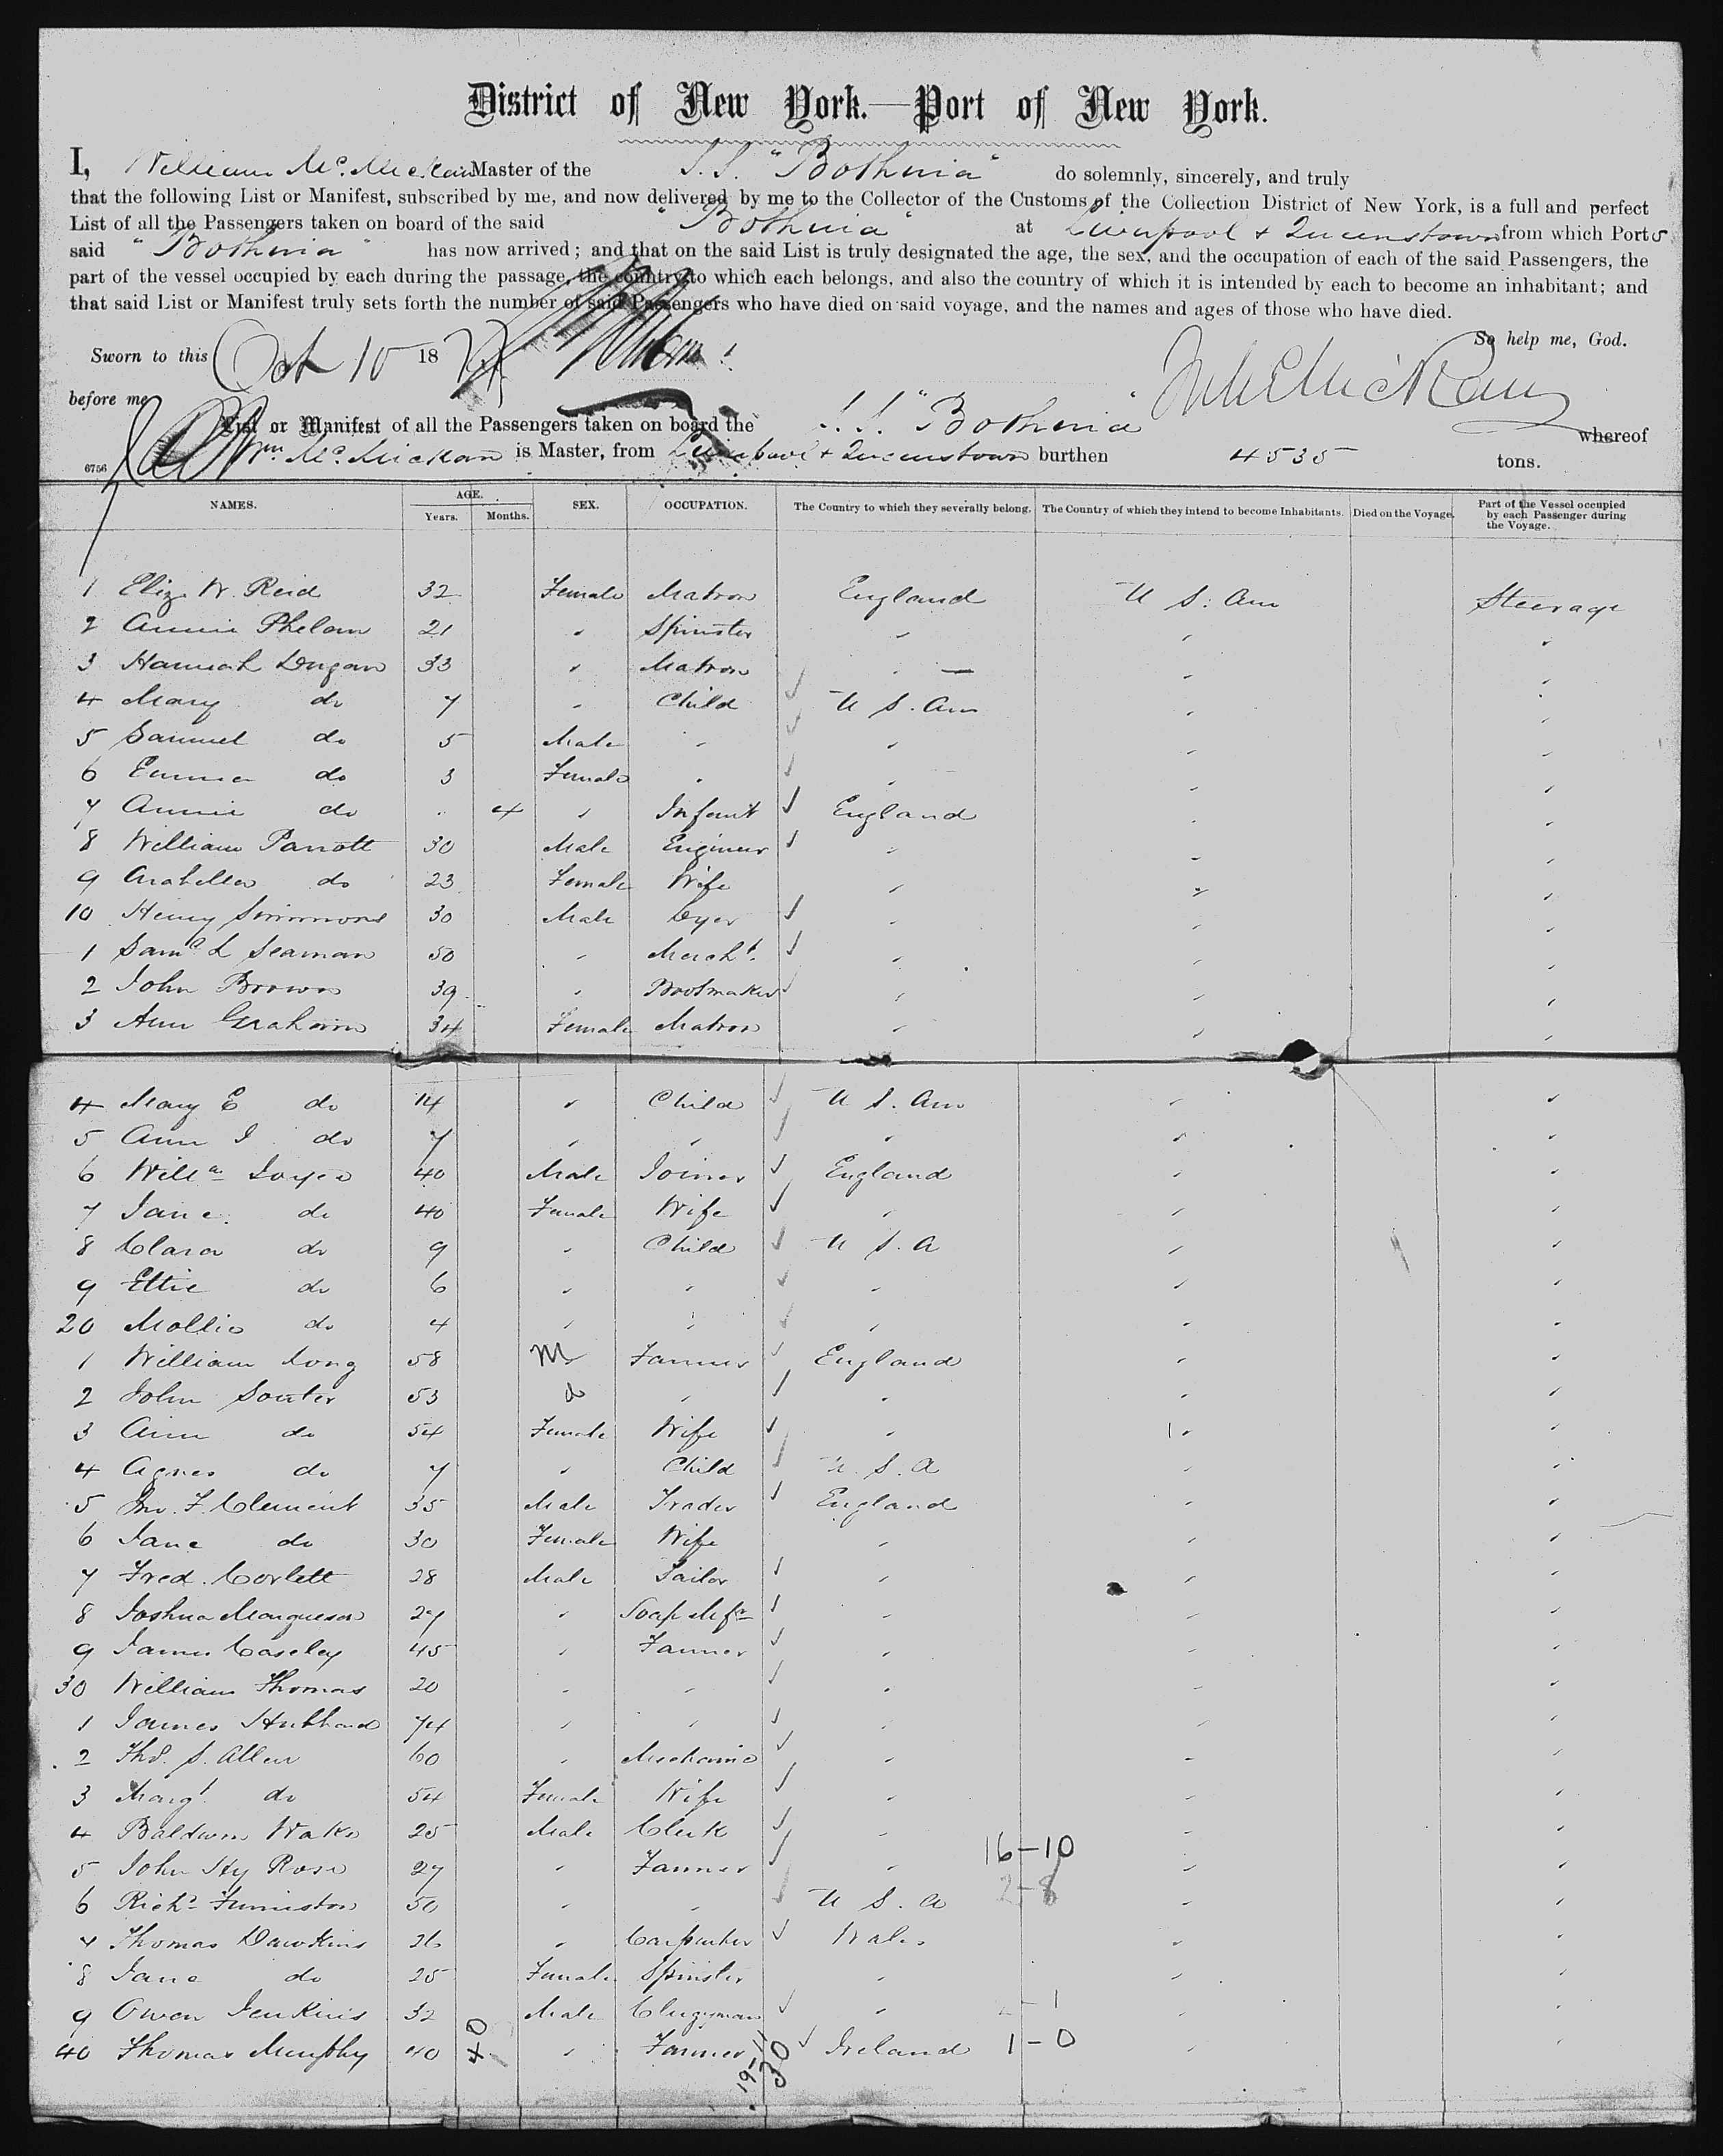 District of New York.—Port of New York.
I, William Mc. Mickan Master of the S.S. "Bothnia" do solemnly, sincerely, and truly
that the following List or Manifest, subscribed by me, and now delivered by me to the Collector of the Customs of the Collection District of New York, is a full and perfect
List of all the Passengers taken on board of the said "Bothnia" at Liverpool & Queenstown from which Ports
said "Bothnia" has now arrived; and that on the said List is truly designated the age, the sex, and the occupation of each of the said Passengers, the
part of the vessel occupied by each during the passage, the country to which each belongs, and also the country of which it is intended by each to become an inhabitant; and
that said List or Manifest truly sets forth the number of said Passengers who have died on said voyage, and the names and ages of those who have died.
So help me, God.
Sworn to this Oct 10 18
before me
List or Manifest of all the Passengers taken on board the S.S. "Bothnia" whereof
Wm Mc. Mickan is Master, from Liverpool & Queenstown burthen 4535 tons.
6756
NAMES. AGE. Years. Months. SEX. OCCUPATION. The Country to which they severally belong. The Country of which they intend to become Inhabitants. Died on the Voyage. Part of the Vessel occupied by each Passenger during the Voyage.
1 Eliz. W. Reid 32 Female Matron England U S. Am Steerage
2 Annie Phelan 21 " Spinster " " "
3 Hannah Dugan 33 " Matron " — " "
4 Mary do 7 " Child U S. Am " "
5 Samuel do 5 Male " " " "
6 Emma do 3 Female " " " "
7 Annie do 4 " Infant England " "
8 William Parrott 30 Male Engineer " " "
9 Arabella do 23 Female Wife " " "
10 Henry Simmons 30 Male Dyer " " "
1 Saml L Seaman 50 " Mercht. " " "
2 John Brown 39 " Bootmaker " " "
3 Ann Graham 34 Female Matron " " "
4 Mary E do 14 " Child U S. Am " "
5 Ann J. do 7 " " " " "
6 Willm Joyce 40 Male Joiner England " "
7 Jane do 40 Female Wife " " "
8 Clara do 9 " Child U S. A " "
9 Ettie do 6 " " " " "
20 Mollie do 4 " " " " "
1 William Long 58 M Farmer England " "
2 John Souter 53 do " " " "
3 Ann do 54 Female Wife " " "
4 Agnes do 7 " Child U. S. A " "
5 Jno. F. Clement 35 Male Trader England " "
6 Jane do 30 Female Wife " " "
7 Fred. Corlett 28 Male Tailor " " "
8 Joshua Margueson 27 " Soap Mfr " " "
9 James Caseley 45 " Farmer " " "
30 William Thomas 20 " " " " "
1 James Hubband 74 " " " " "
2 Thos. S. Allen 60 " Mechanic " " "
3 Margt. do 54 Female Wife " " "
4 Baldwin Wake 25 Male Clerk " " "
16–10
5 John Hy Rose 27 " Farmer " " "
2–8
6 Richd Furniston 50 " " U S. A " "
7 Thomas Dawkins 26 " Carpenter Wales " "
8 Jane do 25 Female Spinster " " "
9 Owen Jenkins 32 Male Clergyman " " "
1
40 Thomas Murphy 40 " Farmer Ireland " "
1–0
40
19–11
30